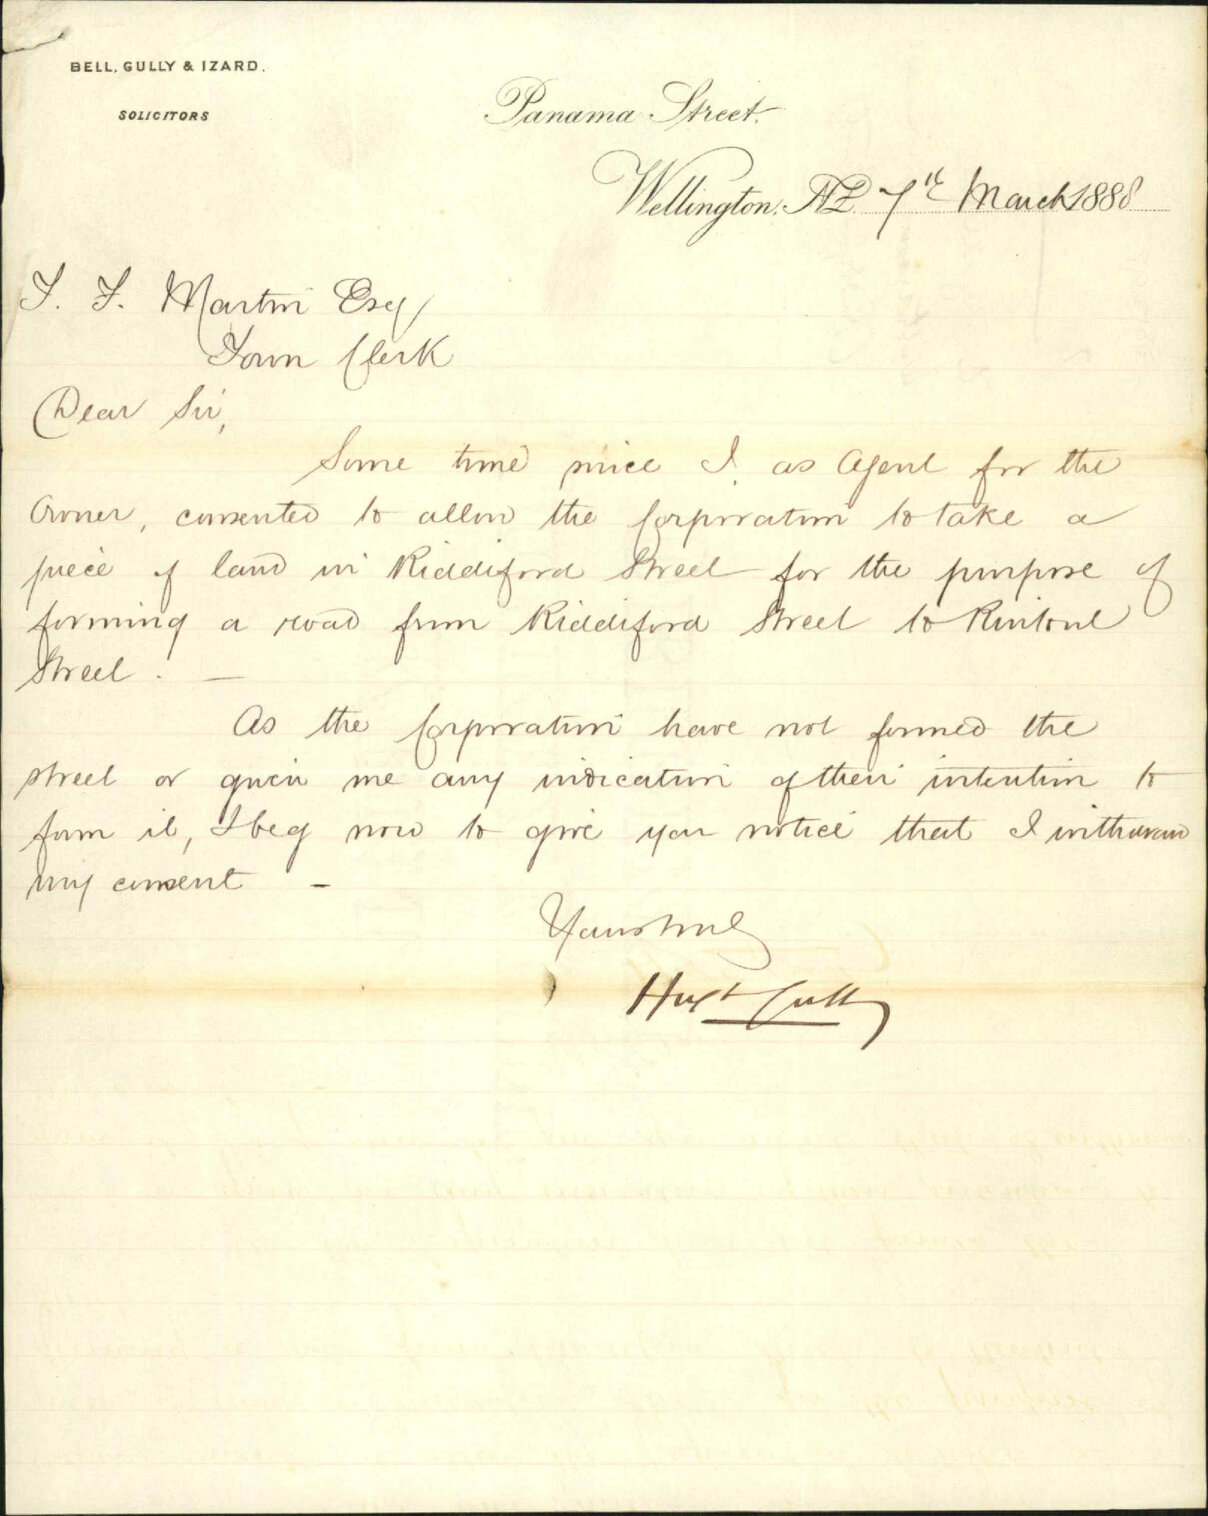 BELL, GULLY & IZARD.
SOLICITORS
Panama Street.
Wellington, NZ. 7th March 1888
F. F. Martin Esq
Town Clerk
Dear Sir,
Some time since I as Agent for the
Owner, consented to allow the Corporation to take a
piece of land in Riddiford Street for the purpose of
forming a road from Riddiford Street to Rintoul
Street. —
As the Corporation have not formed the
street or given me any indication of their intention to
form it, I beg now to give you notice that I withdraw
my consent —
Yours truly
Hugh Gully